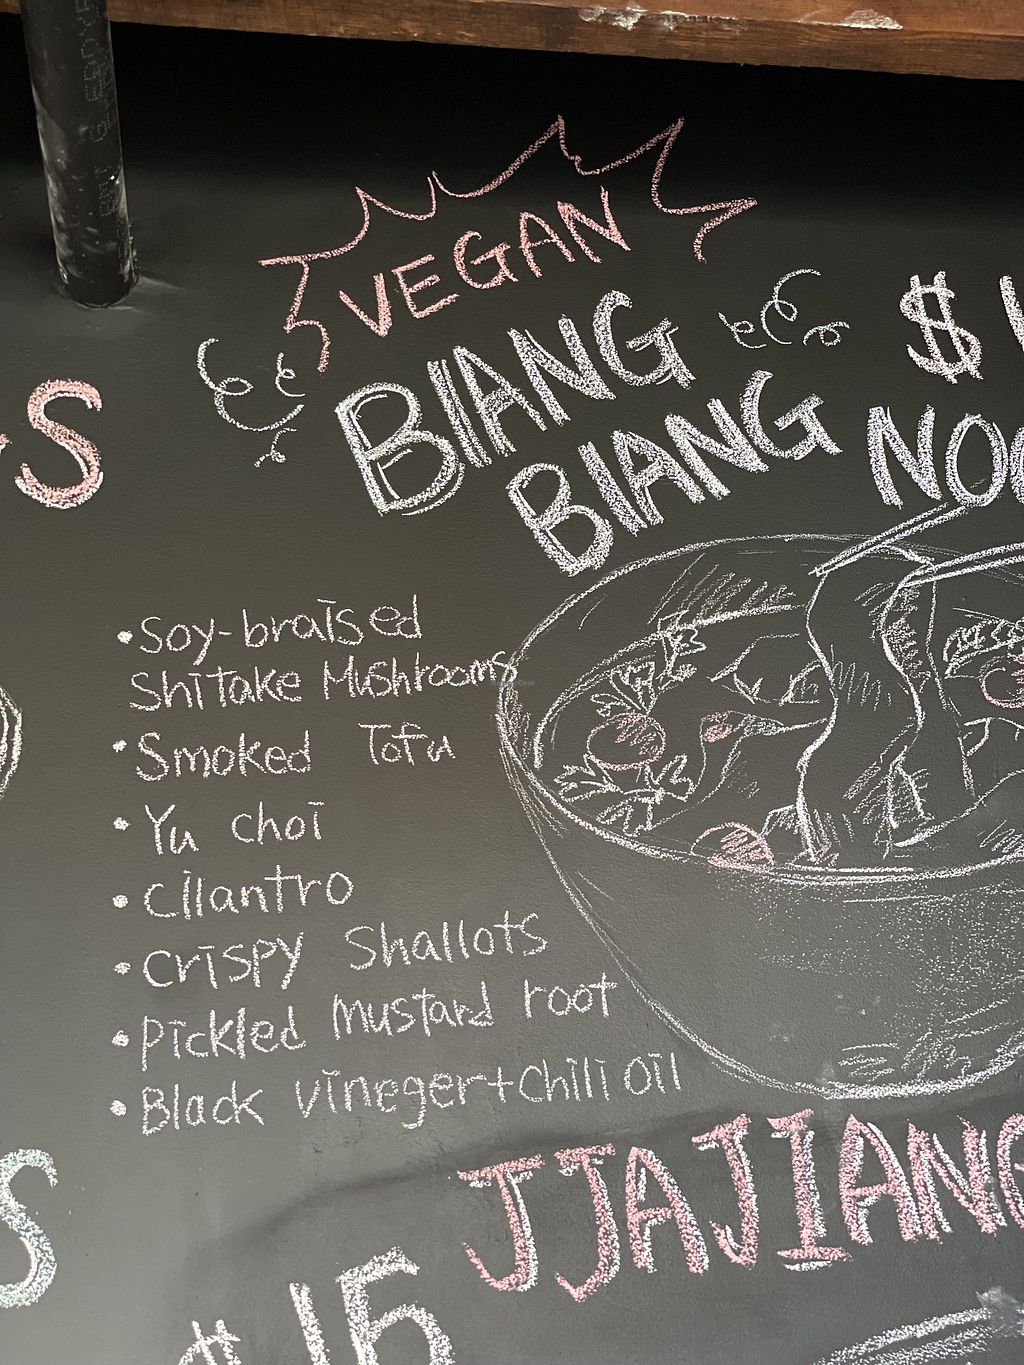 VEGAN
BIANG
BIANG
$
S
• Soy-braised
Shitake Mushrooms
• Smoked Tofu
• Yu choi
• cilantro
• crispy Shallots
• Pickled Mustard root
• Black vineger+chili oil
JJAJIANG
S
$15